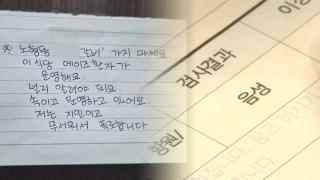 ※ 노형동 갈비' 가지 마세요
이 식당 에이즈환자가
운영해요.
널리 알려야 돼요.
속이고 운영하고 있어요.
저는 지인이고
무서워서 폭로합니다
검사결과
음성
항원/
이상